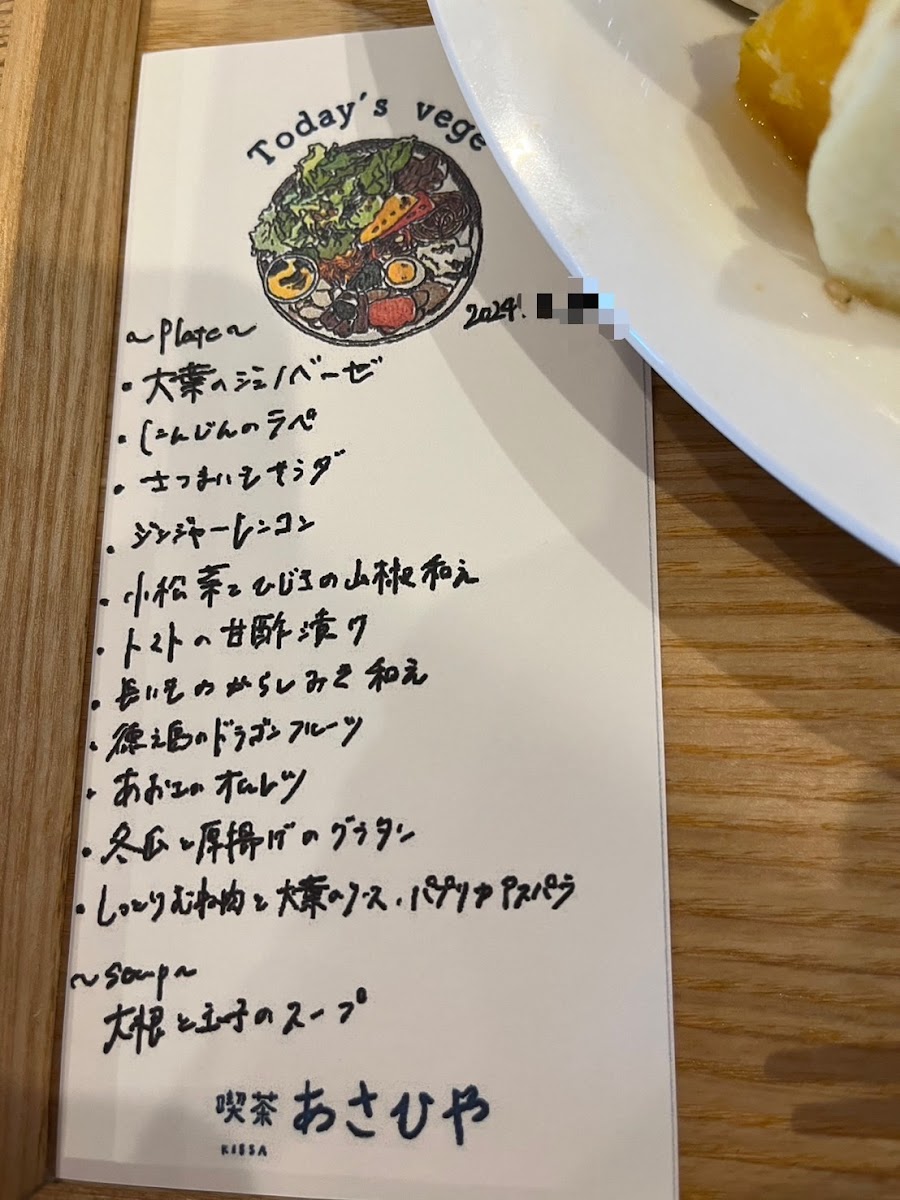 Today's vege
2024.
~Plate~
・大葉のジェノベーゼ
・にんじんのラペ
・さつまいもサラダ
・ジンジャーレンコン
・小松菜とひじきの山椒和え
・トマトの甘酢漬け
・長いものからしみそ和え
・徳之島のドラゴンフルーツ
・あおさのオムレツ
・冬瓜と厚揚げのグラタン
・しっとりむね肉と大葉のソース、パプリカアスパラ
~soup~
大根と玉子のスープ
喫茶 あさひや
KISSA